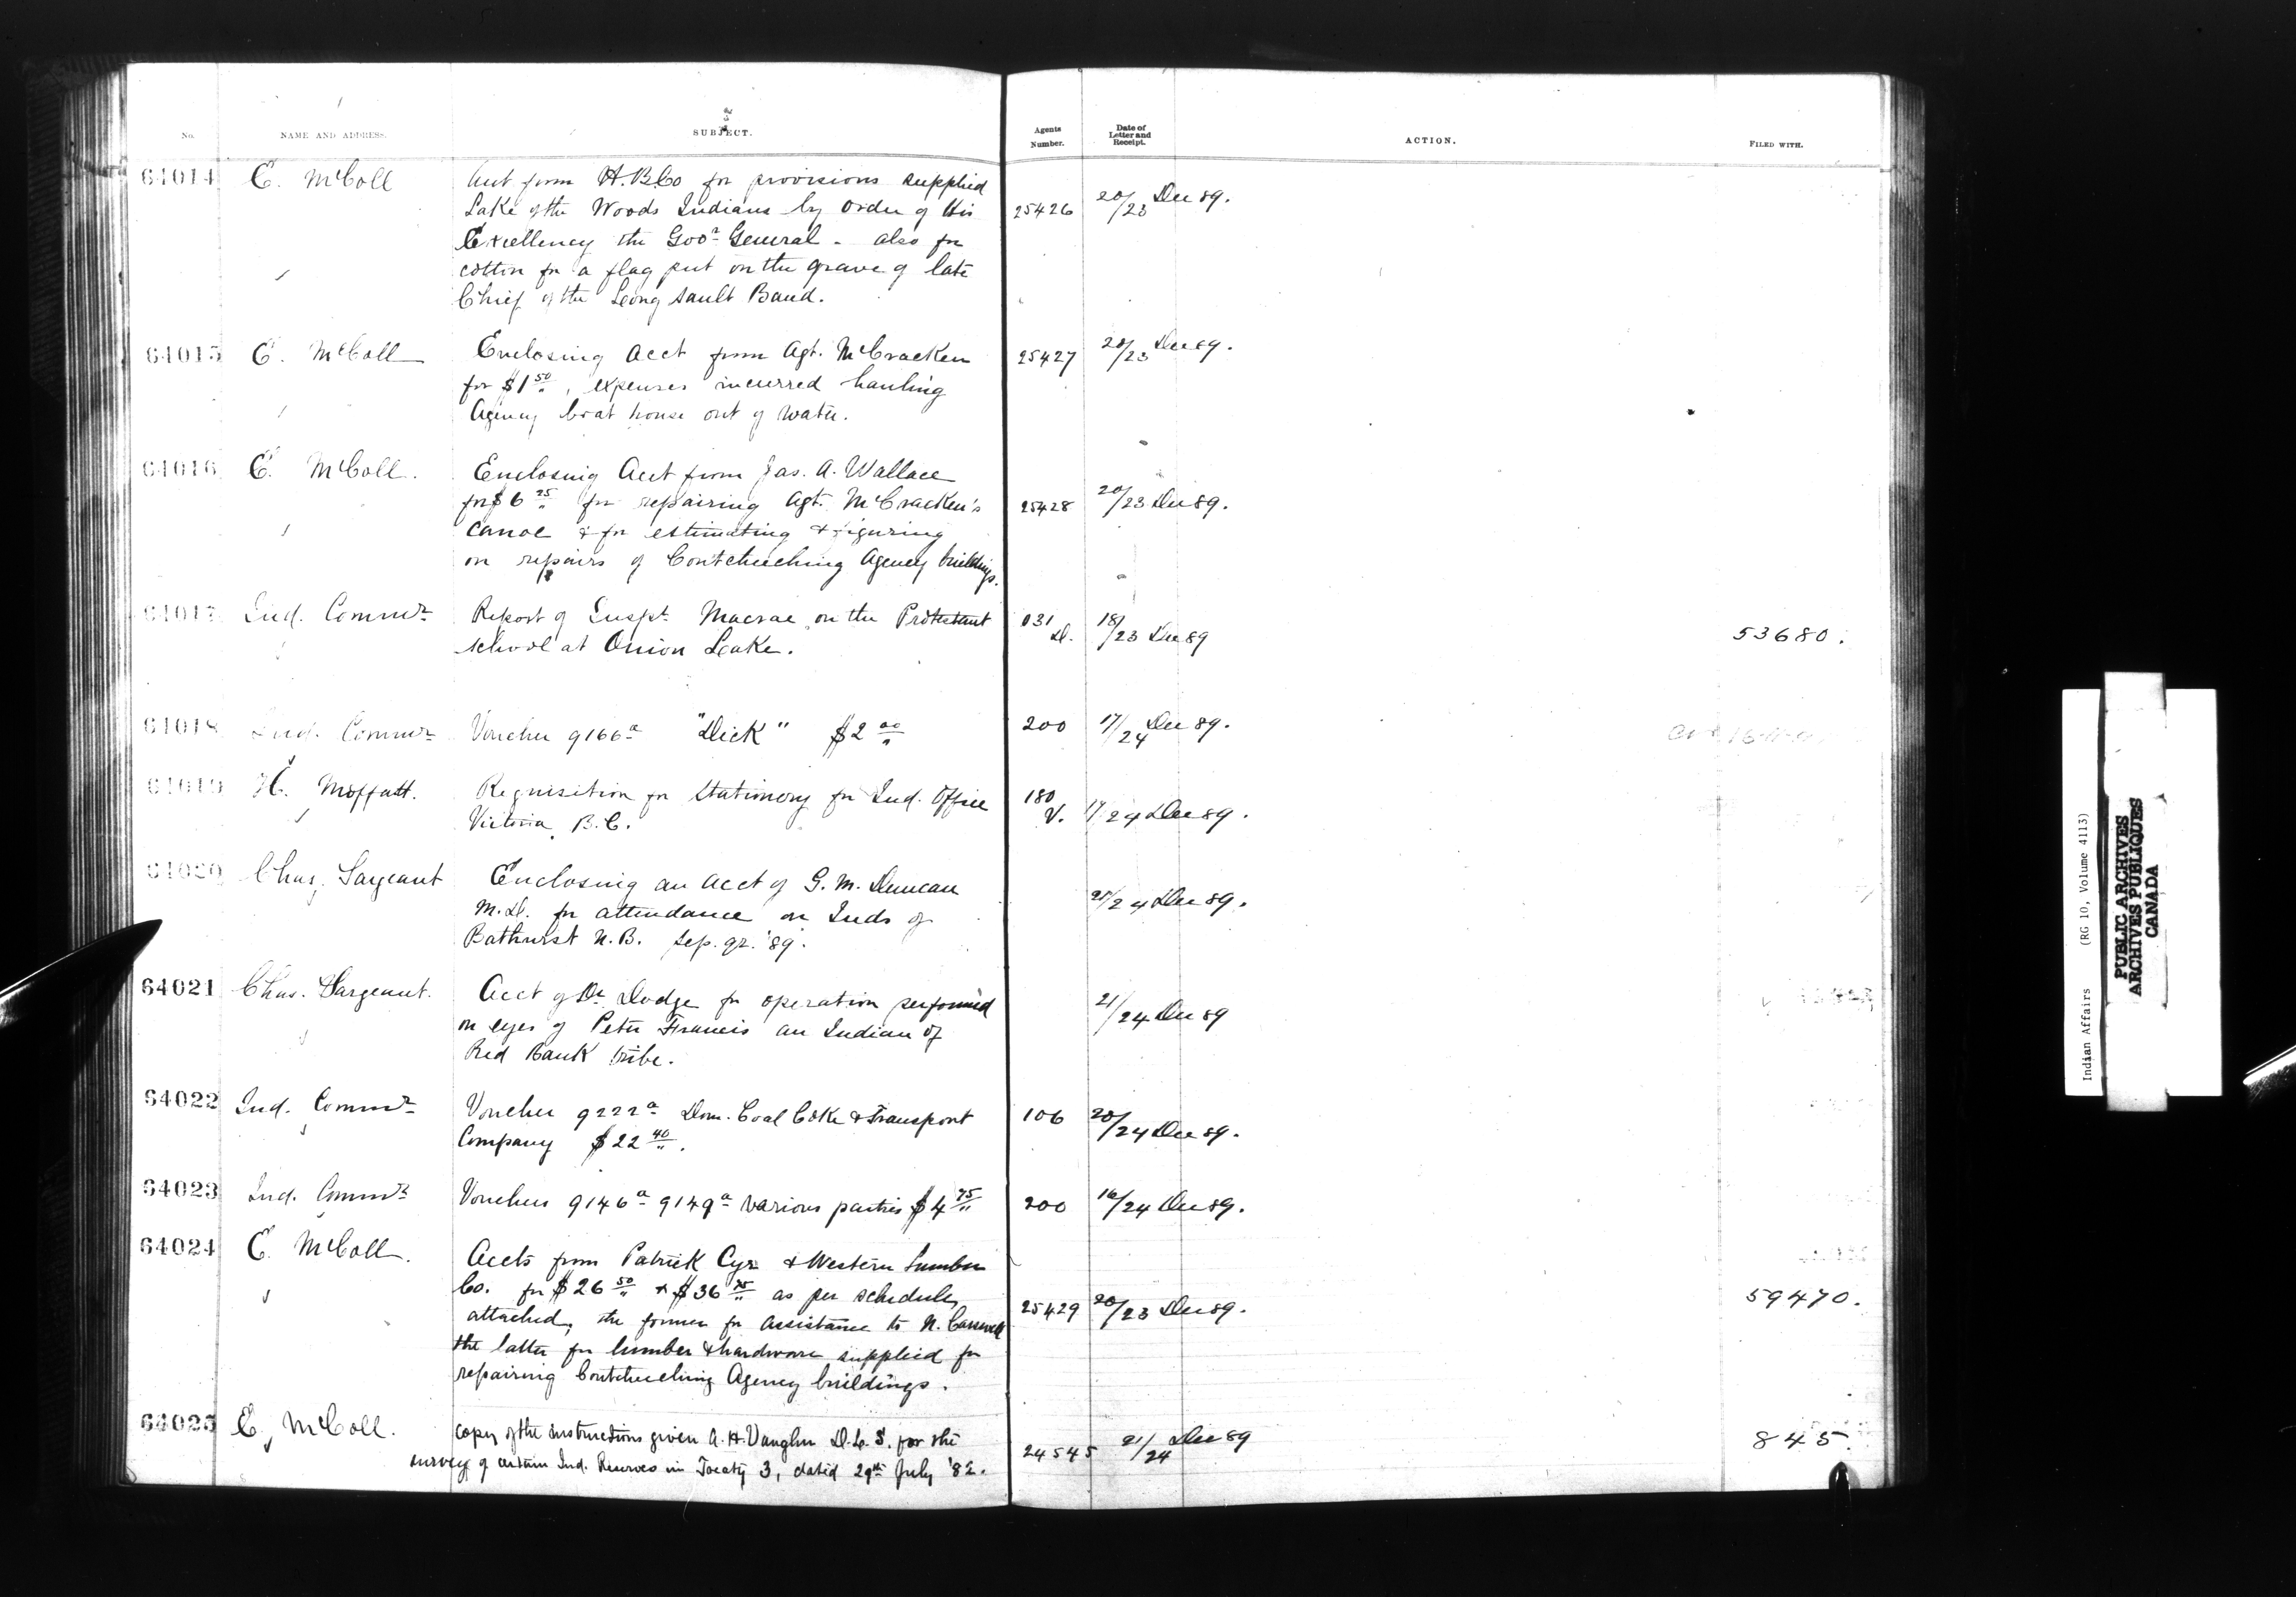 No. NAME AND ADDRESS. SUBJECT. Agents Number. Date of Letter and Receipt. ACTION. FILED WITH.
64014 E. McColl Acct from H.B.Co for provisions supplied
Lake of the Woods Indians by order of His 25426 20/23 Dec 89.
Excellency the Govr General - also for
cotton for a flag put on the grave of late
Chief of the Long Sault Band.
64015 E. McColl Enclosing Acct from Agt. McCracken 25427 20/23 Dec 89.
for $1 50, expenses incurred hauling
Agency boat house out of water.
64016 E. McColl. Enclosing Acct from Jas. A. Wallace
for $6 25 for repairing Agt. McCracken's 25428 20/23 Dec 89.
canoe & for estimating & figuring
on repairs of Coutcheeching Agency buildings.
64017 Ind. Commr Report of Inspt. Macrae on the Protestant 031 D. 18/23 Dec 89 53680.
school at Onion Lake.
64018 Ind. Commr Voucher 9166a "Dick" $2 00 200 17/24 Dec 89.
64019 H. Moffatt. Requisition for Stationery for Ind. Office 180 V. 17/24 Dec 89.
Victoria B.C.
64020 Chas. Sargeant Enclosing an acct of G. M. Duncan
M.D. for attendance on Inds of 21/24 Dec 89.
Bathurst N.B. Sep. qr. '89.
64021 Chas. Sargeant. Acct of Dr Dodge for operation performed
on eyes of Peter Francis an Indian of 21/24 Dec 89
Red Bank tribe.
64022 Ind. Commr Voucher 9222a Dom. Coal Coke & Transport 106 20/24 Dec 89.
Company $22 40.
64023 Ind. Commr Vouchers 9146a 9149a various parties $4 75 200 16/24 Dec 89.
64024 E. McColl. Accts from Patrick Cyr & Western Lumber
Co. for $26 50 & $36 75 as per schedule 25429 20/23 Dec 89. 59470.
attached, the former for assistance to N.
the latter for lumber & hardware supplied for
repairing Coutcheeching Agency buildings.
64025 E. McColl. Copy of the instructions given A. H. Vaughn D.L.S. for the 24545 21/24 Dec 89 845.
survey of certain Ind. Reserves in Treaty 3, dated 29th July '82.
Indian Affairs (RG 10, Volume 4113)
PUBLIC ARCHIVES
ARCHIVES PUBLIQUES
CANADA